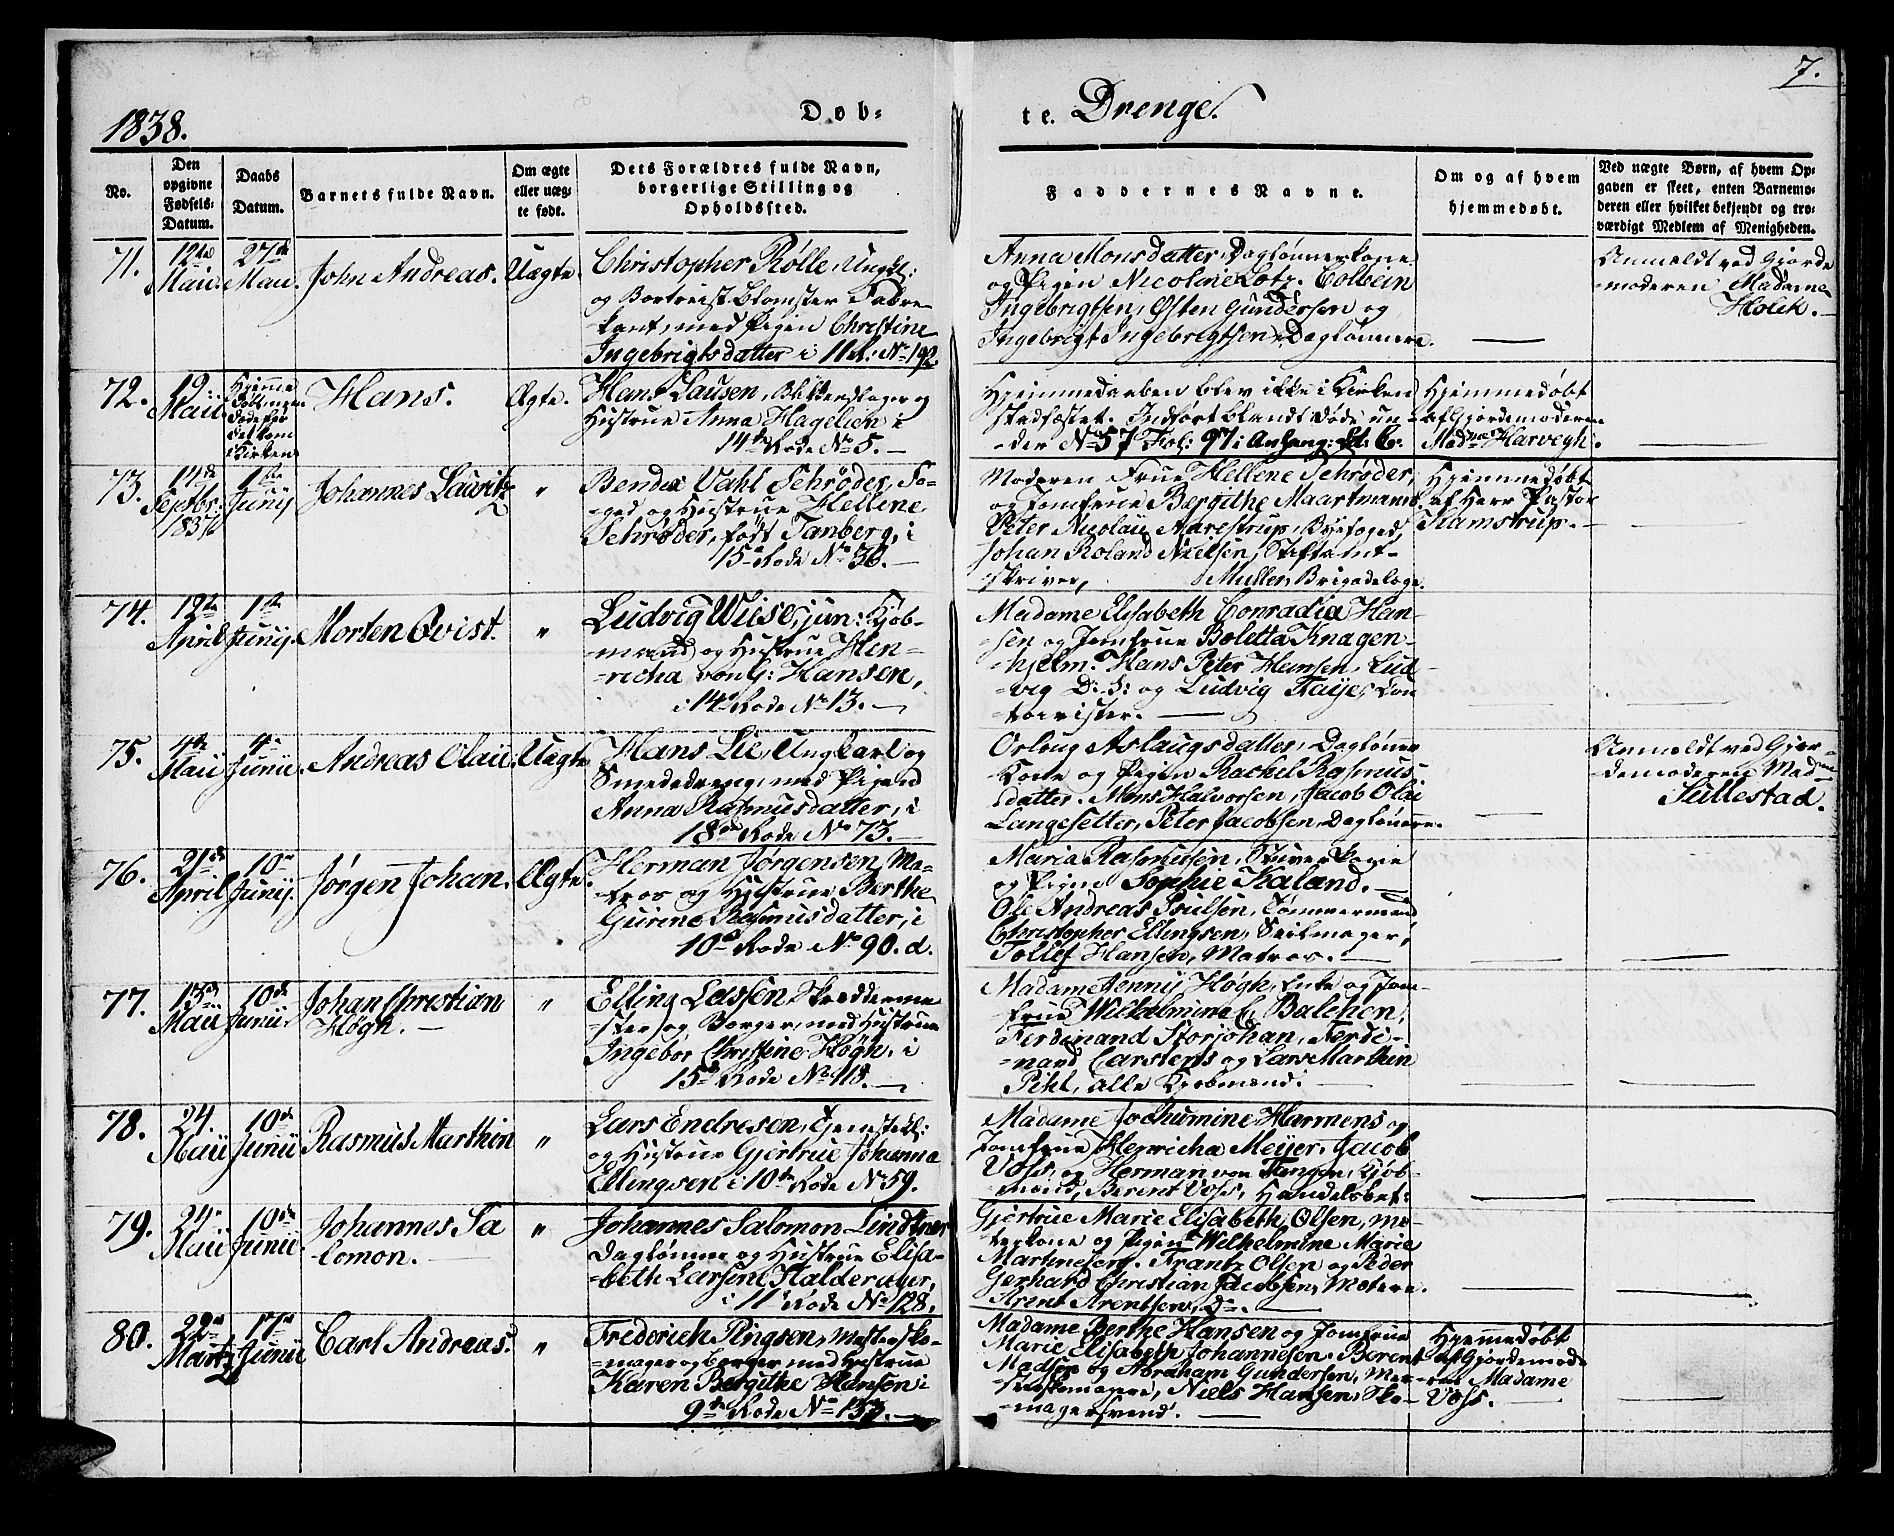 7.
1838.
Døb-
te. Drenge.
No.
Den opgivne Fødsels-Datum.
Daabs Datum.
Barnets fulde Navn.
Om ægte eller uæg-te født.
Dets Forældres fulde Navn, borgerlige Stilling og Opholdssted.
Faddernes Navne.
Om og af hvem hjemmedøbt.
Ved uægte Børn, af hvem Op-gaven er skeet, enten Barnemo-deren eller hvilket bekjendt og tro-værdigt Medlem af Menigheden.
71.
12te Maii
27de Maii.
John Andreas.
Uægte.
Christopher Rølle, Ungkl:
og Bortreist Blomster Fabre-
-kant, med Pigen Christine
Ingebrigtsdatter i 11 R: No 192.
Anna Monsdatter, Daglønnerkone
og Pigen Nicoline Lotz. Colbein
Ingebrigtsen, Østen Gundersen og
Ingebrigt Ingebregtsen, Daglønnere.
Anmeldt ved Gjorde
-moderen Madame
Holck.
72.
19. Maii
Hjemme
Døbt, men
Døde før
det kom
i Kirken
Hans.
Ægte.
Hans Clausen, Blikkenslager og
Hustrue Anna Hagelien i
14de Rode No 5.
Hjemmedaaben blev ikke i Kirken
stadfæstet. Indført blandt Døde un-
der No 57 Fol: 97:
Hjemmedøbt
af Gjordemoderen
Madme Harvegh.
73.
14de Septbr: 1837
1ste Junij
Johannes Lauritz
"
Bendix Vahl Schrøder, Fo-
ged og Hustrue Hellene
Schrøder, født Tanberg, i
15de Rode No 30.
Moderen Frue Hellene Schrøder,
og Jomfrue Bergithe Maartmann.
Peter Nicolai Aarestrup, Byefoged,
Johan Roland Nielsen, Stiftamt-
skriver, Muller, Brigadelæge.
Hjemmedøbt
af Herr Pastor
Kamstrup.
74.
12te April
1ste Junij.
Morten Qvist.
"
Ludvig Wiese, jun: Kjøb-
-mand og Hustrue Hen-
-richa von G: Hansen,
i 14de Rode No 13.
Madame Elisabeth Conradia Han-
-sen og Jomfrue Boletta Knagen-
-hjelm. Hans Peter Hansen, Lud-
-vig D: S: og Ludvig Faye, Con
torister.
75.
4de Maii
4de Junii.
Andreas Olaii.
Uægte
Hans Lie, Ungkarl og
Smededreng, med Pigen
Anna Rasmusdatter, i
18de Rode No 73.
Orloug Aslaugsdatter, Daglønner
Kone og Pigen Rachel Rasmus-
datter. Mons Halvorsen, Jacob Olai
Langesetter, Peter Jacobsen, Daglønnere.
Anmeldt ved Gjor-
-demoderen Madme
Sillestad.
76.
21de April
10de Junij.
Jørgen Johan.
Ægte.
Herman Jørgensen, Ma-
-tros og Hustrue Berthe
Gurine Rasmusdatter, i
10de Rode No 90. d.
Maria Rasmussen,
og Pigen Sophie Kaland.
Ole Andreas Poulsen, Tømmermand
Christopher Ellingsen, Seilmager,
Tollef Hansen, Matros.
77.
13de Maii
10de Junii.
Johan Christian
Høgh.
"
Elling Lassen, Skreddermei
-ster og Borger, med Hustrue
Ingebor Christine Høgh, i
15de Rode No 118.
Madame Jennij Høgh, Enke og Jom-
frue Wilhelmine C. Balchen,
Ferdinand Storjohan, Ferdi-
-nand Carstens og Lars Marthin
Pihl, alle Kjøbmænd:
78.
24. Maii
10de Junii
Rasmus Marthin
"
Lars Endresen, Tjenistekl:
og Hustrue Gjertrue Johanna
Ellingsen i 10de Rode No 59.
Madame Jochumine Harmens og
Jomfrue Henricha Meijer. Jacob
Voss, og Herman von Tangen, Kjøb-
-mænd, Berent Voss, Handelsbet:
79.
24de Maii
10de Junii.
Johannes Sa
lomon.
"
Johannes Salomon Lindtner
Daglønner og Hustrue Elisa-
-beth Larsine Halderager,
i 11te Rode No 128.
Gjertrue Marie Elisabeth Olsen, Mu-
-rerkone og Pigen Wilhelmine Marie
Martinesen. Frantz Olsen og Peder
Gerhard Christian Jacobsen, Murere.
Arent Arentsen, Do.
80.
22de Martz
17de Junii
Carl Andreas.
"
Frederich Ringsen, Mester Sko-
-mager og Borger med Hustrue
Karen Bergithe Hansen i
9de Rode No 133.
Madame Berthe Hansen og Jomfrue
Marie Elisabeth Johannesen. Berent
Madsen og Abraham Gundersen, Me-
-sterskomagere, Niels Hansen, Sko-
-magersvend.
Hjemmedøbt
af Gjordemode
-ren Madame
Voss.